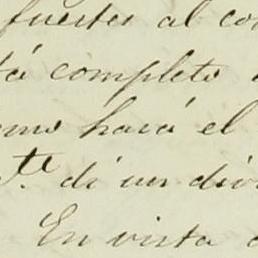 fuertes al co
tá completo
omo hará el
te. di un div
En vista